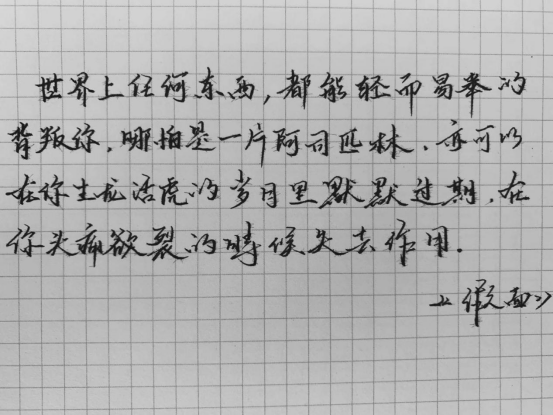 世界上任何东西,都能轻而易举的
背叛你,哪怕是一片阿司匹林.亦可以
在你生龙活虎的岁月里默默过期,在
你头痛欲裂的時候失去作用.
《假面》